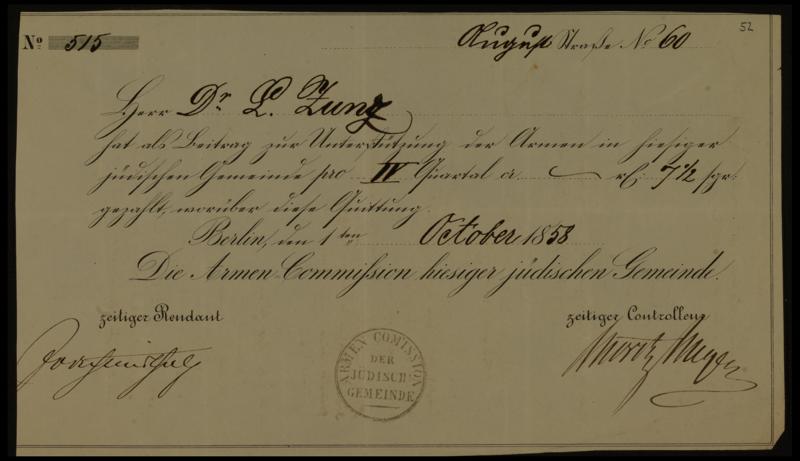 52
No. 515
August Straße No 60
Herr Dr. L. Zunz
hat als Beitrag zur Unterstützung der Armen in hiesiger
jüdischen Gemeinde pro IV Quartal cr. — rℓ. 7 1/2 sgr.
gezahlt, worüber diese Quittung.
Berlin, den 1ten October 1858
Die Armen Commission hiesiger jüdischen Gemeinde.
zeitiger Rendant
zeitiger Controlleur
Moritz Meyer
ARMEN COMISSION
DER
JÜDISCH
GEMEINDE